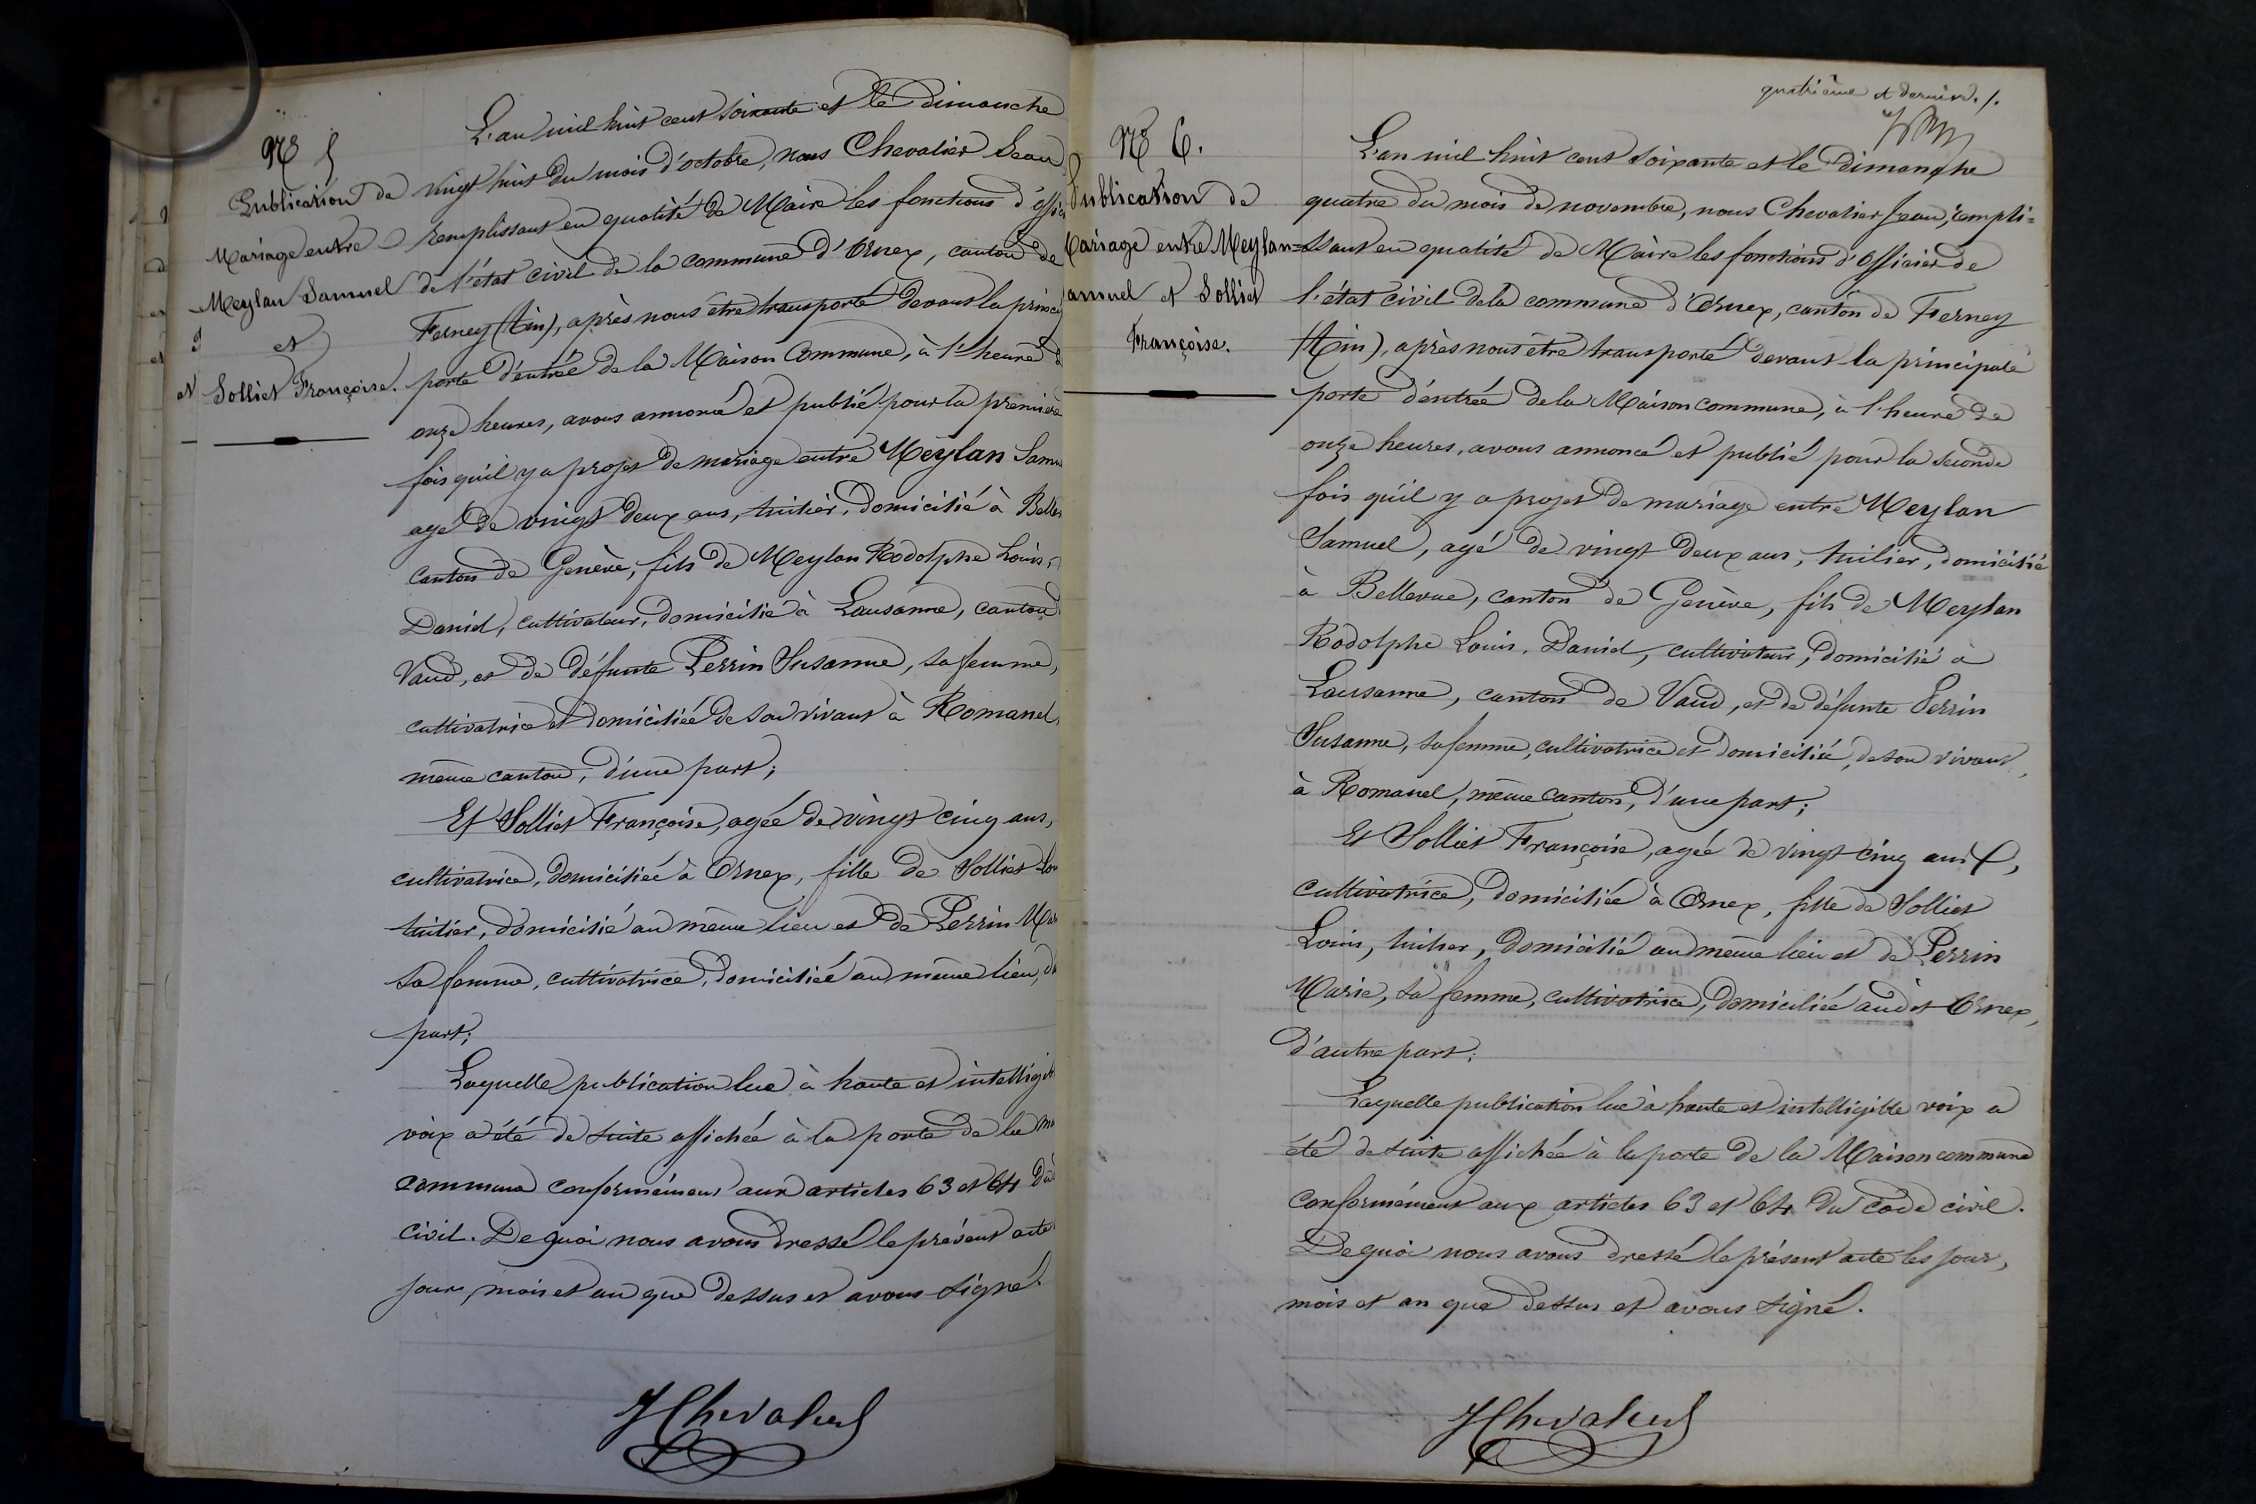 No 5
Publication de
Mariage entre
Meylan Samuel
et
Solliet Françoise.
L'an mil huit cent soixante et le Dimanche
vingt huit du mois d'octobre, nous Chevalier Jean
remplissant en qualité de Maire les fonctions d'offici
de l'état civil de la commune d'Ornex, canton de
Ferney (Ain), après nous être transporté devant la princi
porte d'entrée de la Maison Commune, à l'heure d
onze heures, avons annoncé et publié pour la première
fois qu'il y a projet de mariage entre Meylan Samu
agé de vingt deux ans, tuilier, domicilié à Belle
canton de Genève, fils de Meylan Rodolphe Louis,
Daniel, cultivateur, domicilié à Lausanne, canton
Vaud, et de défunte Perrin Susanne, sa femme,
cultivatrice et domiciliée de son vivant à Romanel
même canton, d'une part;
Et Solliet Françoise, agée de vingt cinq ans,
cultivatrice, domiciliée à Ornex, fille de Solliet Lou
tuilier, domicilié au même lieu et de Perrin Mar
sa femme, cultivatrice, domiciliée au même lieu, d'a
part;
Laquelle publication lue à haute et intelligib
voix a été de suite affichée à la porte de la m
commune conformément aux articles 63 et 64 du
civil. De quoi nous avons dressé le présent acte
jour, mois et an que dessus et avons signé.
JChevalier
quatrième et dernier./.
No 6.
Publication de
Mariage entre Meylan
Samuel et Solliet
Françoise.
L'an mil huit cent soixante et le Dimanche
quatre du mois de novembre, nous Chevalier Jean, rempli=
=ssant en qualité de Maire les fonctions d'Officier de
l'état civil de la commune d'Ornex, canton de Ferney
(Ain), après nous être transporté devant la principale
porte d'entrée de la Maison commune, à l'heure de
onze heures, avons annoncé et publié pour la seconde
fois qu'il y a projet de mariage entre Meylan
Samuel, agé de vingt deux ans, tuilier, domicilié
à Bellevue, canton de Genève, fils de Meylan
Rodolphe Louis, Daniel, cultivateur, domicilié à
Lausanne, canton de Vaud, et de défunte Perrin
Susanne, sa femme, cultivatrice et domiciliée, de son vivant,
à Romanel, même canton, d'une part;
Et Solliet Françoise, agée de vingt cinq ans,
cultivatrice, domiciliée à Ornex, fille de Solliet
Louis, tuilier, domicilié au même lieu et de Perrin
Marie, sa femme, cultivatrice, domiciliée audit Ornex,
d'autre part;
Laquelle publication lue à haute et intelligible voix a
été de suite affichée à la porte de la Maison commune
conformément aux articles 63 et 64 du code civil.
De quoi nous avons dressé le présent acte les jour,
mois et an que dessus et avons signé.
JChevalier